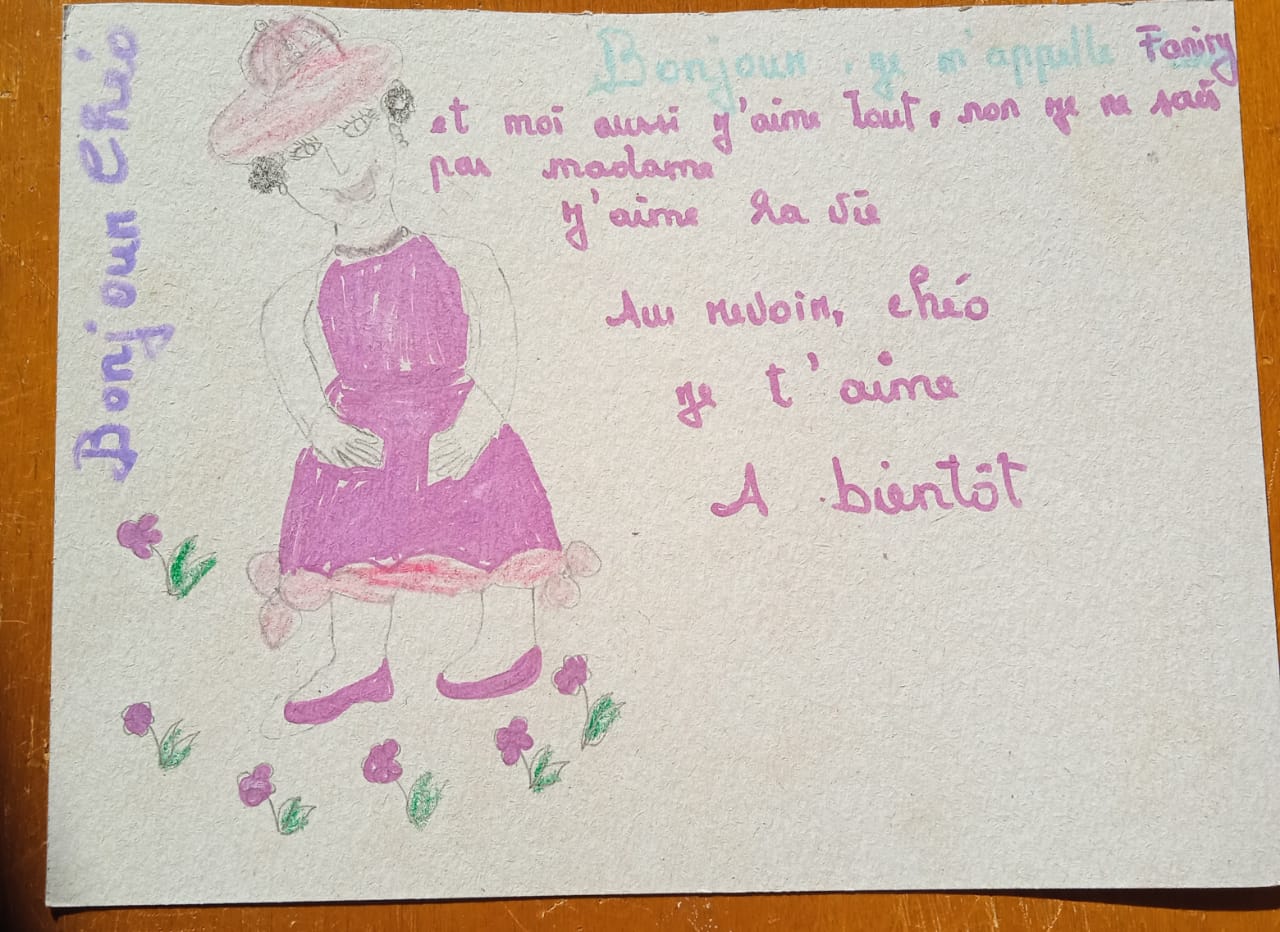 Bonjour Chéo
Bonjour, je m'appelle Faniry
et moi aussi j'aime tout, non je ne sais
pas madame
J'aime la vie
Au revoir, chéo
je t'aime
A bientôt